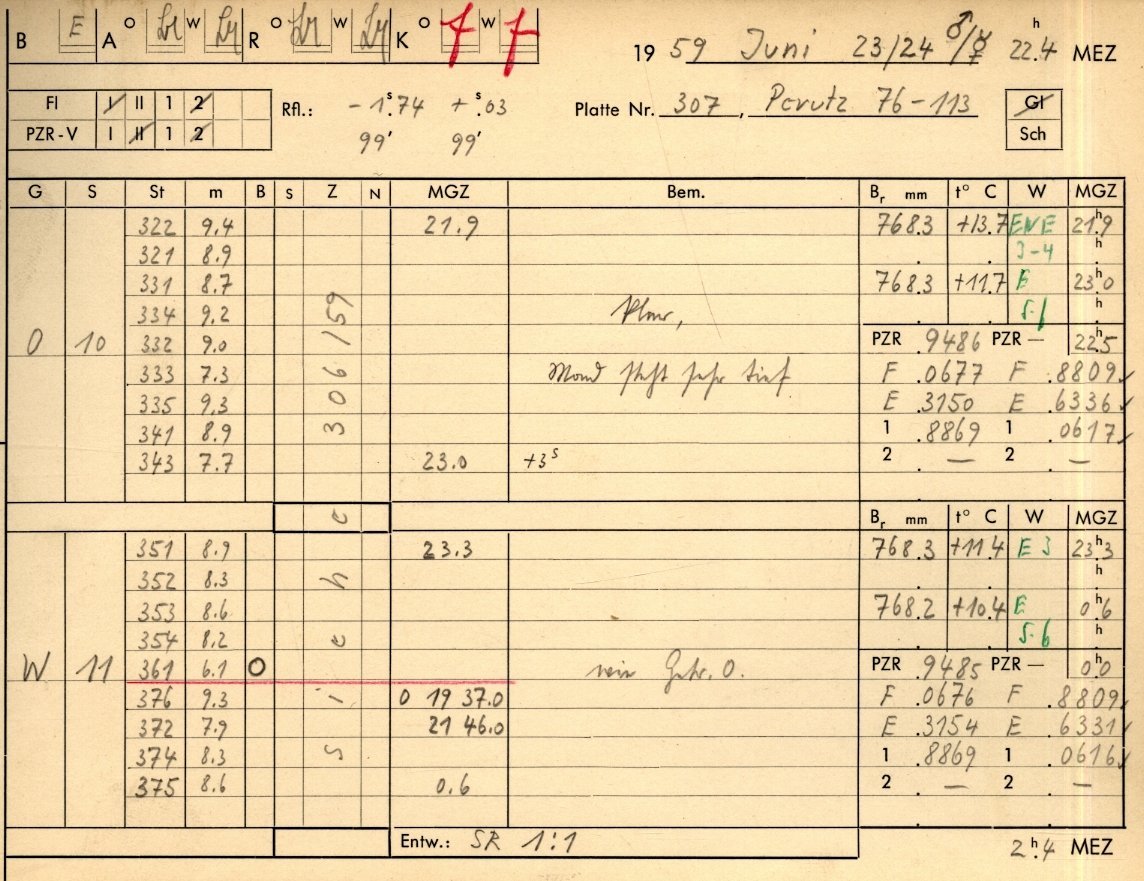 B E A O W R O W K O f W f 19 59 Juni 23/24 ♂/☿ 22.4 h MEZ
Fl I II 1 2 Rfl.: - 1.74 s + .03 s Platte Nr. 307, Perutz 76-113 Gl
PZR-V I II 1 2 99' 99' Sch
G S St m B S Z N MGZ Bem. Br mm t° C W MGZ
322 9.4 21.9 768.3 +13.7 ENE 21.9 h
321 8.9 3-4 h
331 8.7 768.3 +11.7 E 23.0 h
334 9.2 5-6 h
O 10 332 9.0 PZR .9486 PZR — 22.5 h
333 7.3 Mond steht sehr tief F .0677 F .8809
335 9.3 E .3150 E .6336
341 8.9 1 .8869 1 .0617
343 7.7 23.0 +3s 2 — 2 —
siehe 306/59
Br mm t° C W MGZ
351 8.9 23.3 768.3 +11.4 E 3 23.3 h
352 8.3 h
353 8.6 768.2 +10.4 E 0.6 h
354 8.2 5-6 h
W 11 361 6.1 O O. PZR .9485 PZR — 0.0 h
376 9.3 0 19 37.0 F .0676 F .8809
372 7.9 21 46.0 E .3154 E .6331
374 8.3 1 .8869 1 .0616
375 8.6 0.6 2 — 2 —
Entw.: SR 1:1 2.4 h MEZ